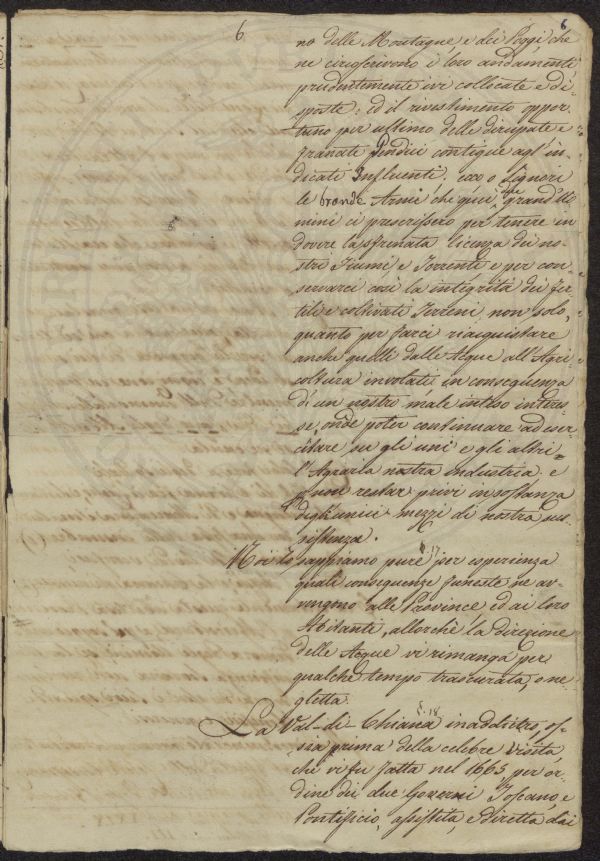 6
6
no delle Montagne, e dei Poggi che
ne circoscrivono i loro andamenti
prudentemente ivi collocate e di-
sposte; ed il rivestimento oppor-
tuno per ultimo delle dirupate e
franate Pendici contigue agl'in-
dicati Influenti: ecco o Signori
le Armi che quei due grand'Uo
mini ci prescrissero per tenere in
dovere la sfrenata licenza dei no-
stri Fiumi, e Torrenti e per con-
servarci così la integrità dei fer-
tili e coltivati Terreni non solo,
quanto per farci riacquistare
anche quelli dalle Acque all'Agri-
coltura involati in conseguenza
d'un nostro male inteso interes-
se, onde poter continuare ad eser-
citare su gli uni e gli altri
l'Agraria nostra industria e
non restar privi in sostanza
degli unici mezzi di nostra sus-
sistenza.
§. 17
Noi lo sappiamo pure per esperienza
quali conseguenze funeste ne av-
vengono alle Province, ed ai loro
Abitanti, allorchè la direzione
delle Acque vi rimanga per
qualche tempo trascurata, o ne-
gletta.
§. 18
La Val-di-Chiana inaddietro, os-
sia prima della celebre Visita
che vi fu fatta nel 1665 per or-
dine dei due Governi Toscano, e
Pontificio, assistita, e diretta dai